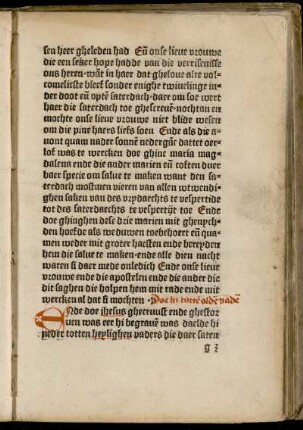 sen heer gheleden had Eñ onse lieue vrouwe
die een seker hope hadde van die verrisenisse
ons heren· wãt in haer dat gheloue alre vol-
comelicste bleef sonder enighe twiuelinge in-
der doot eñ optẽ saterdach· daer om soe wert
haer die saterdach toe ghescreuẽ· nochtan en
mochte onse lieue vrouwe niet blide wesen
om die pine haers liefs soen Ende als die a-
uont quam nader sonnẽ nedergãc dattet oer-
lof was te wercken doe ghinc maria mag-
dalena ende die ander marien eñ coften duer
baer specie om salue te maken want den sa-
terdach mostmen vieren van allen wtwendi-
ghen saken van des vrydaechs te vespertide
tot des saterdaechs te vespertijt toe Ende
doe ghinghen dese drie marien mit ghenych-
den hoefde als weduwen toebehoert eñ qua-
men weder mit groter haesten ende bereyden
hem die salue te maken· ende alle dien nacht
waren si daer mede onledich Ende onse lieue
vrouwe ende die apostelen ende die ander die
dit saghen die holpen hem mit rade ende mit
wercken al dat si mochten· Doe hi tottẽ aldẽ vadẽ
Ende doe ihesus ghecruust ende ghestor
uen was eer hi begrauẽ was daelde hi
neder totten heylighen vaders die daer saten
g 2